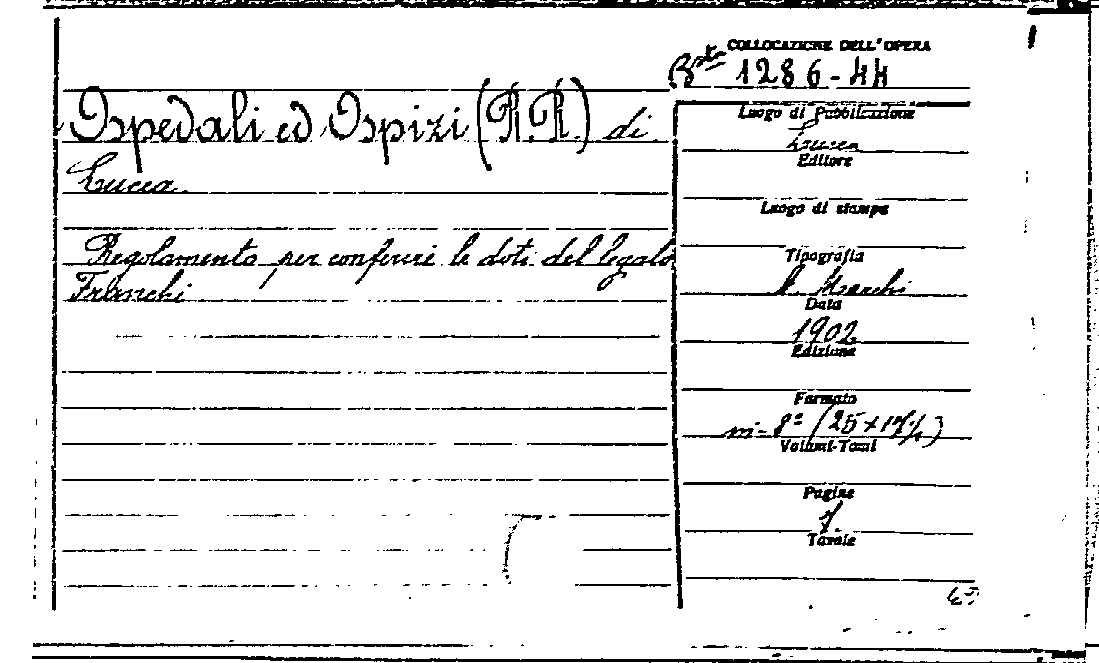 COLLOCAZIONE DELL'OPERA
Bta 1286-44
Ospedali ed Ospizi (R.R.) di
Lucca.
Regolamento per conferire le doti del legato
Franchi
Luogo di Pubblicazione
Lucca
Editore
Luogo di stampa
Tipografia
Marchi
Data
1902
Edizione
Formato
in-8° (25×17½)
Volumi-Tomi
Pagine
7.
Tavole